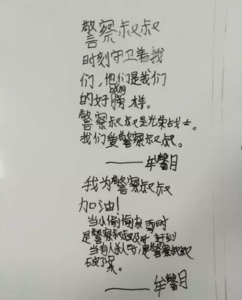 警察叔叔
时刻守卫着我
们，他们是我们
的好榜样。
警察叔叔是光荣战士。
我们爱警察叔叔。
——牟馨月
我为警察叔叔
加油！
当小偷偷东西时
是警察叔叔及时
当有人时是警察叔叔
——牟馨月